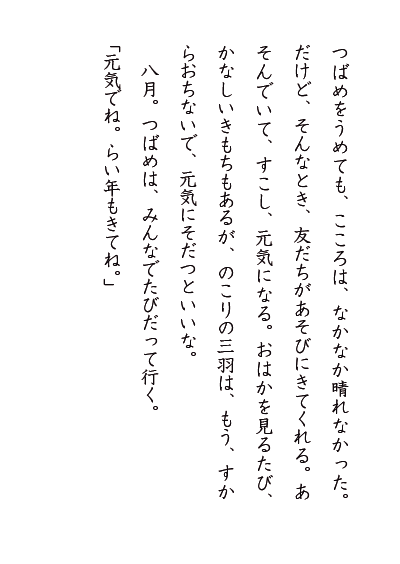 つばめをうめても、こころは、なかなか晴れなかった。
だけど、そんなとき、友だちがあそびにきてくれる。あ
そんでいて、すこし、元気になる。おはかを見るたび、
かなしいきもちもあるが、のこりの三羽は、もう、すか
らおちないで、元気にそだつといいな。
　八月。つばめは、みんなでたびだって行く。
「元気でね。らい年もきてね。」